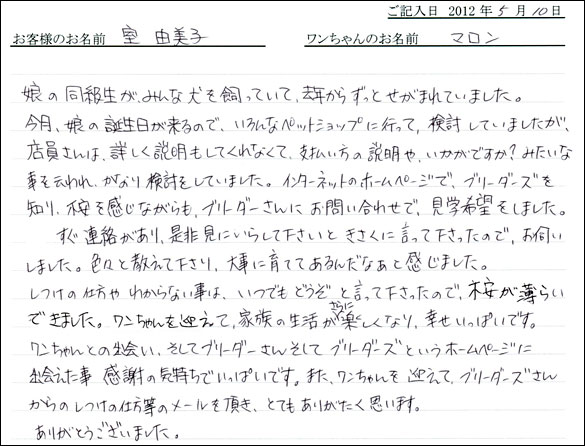 ご記入日 2012年5月10日
お客様のお名前 室 由美子 ワンちゃんのお名前 マロン
娘の同級生が、みんな犬を飼っていて、去年からずっとせがまれていました。
今月、娘の誕生日が来るので、いろんなペットショップに行って、検討していましたが、
店員さんは、詳しく説明もしてくれなくて、支払い方の説明や、いかがですか?みたいな
事を云われ、かなり検討をしていました。インターネットのホームページで、ブリーダーズを
知り、不安を感じながらも、ブリーダーさんにお問い合わせで、見学希望をしました。
すぐ連絡があり、是非見にいらして下さいと きさくに言って下さったので、お伺い
しました。色々と教えて下さり、大事に育ててあるんだなぁと感じました。
しつけの仕方や わからない事は、いつでもどうぞ と言って下さったので、不安が薄らい
できました。ワンちゃんを迎えて、家族の生活がさらに楽しくなり、幸せいっぱいです。
ワンちゃんとの出会い、そしてブリーダーさんそして ブリーダーズというホームページに
出会えた事 感謝の気持ちでいっぱいです。また、ワンちゃんを 迎えて、ブリーダーズさん
からのしつけの仕方等のメールを頂き、とても ありがたく思います。
ありがとうございました。